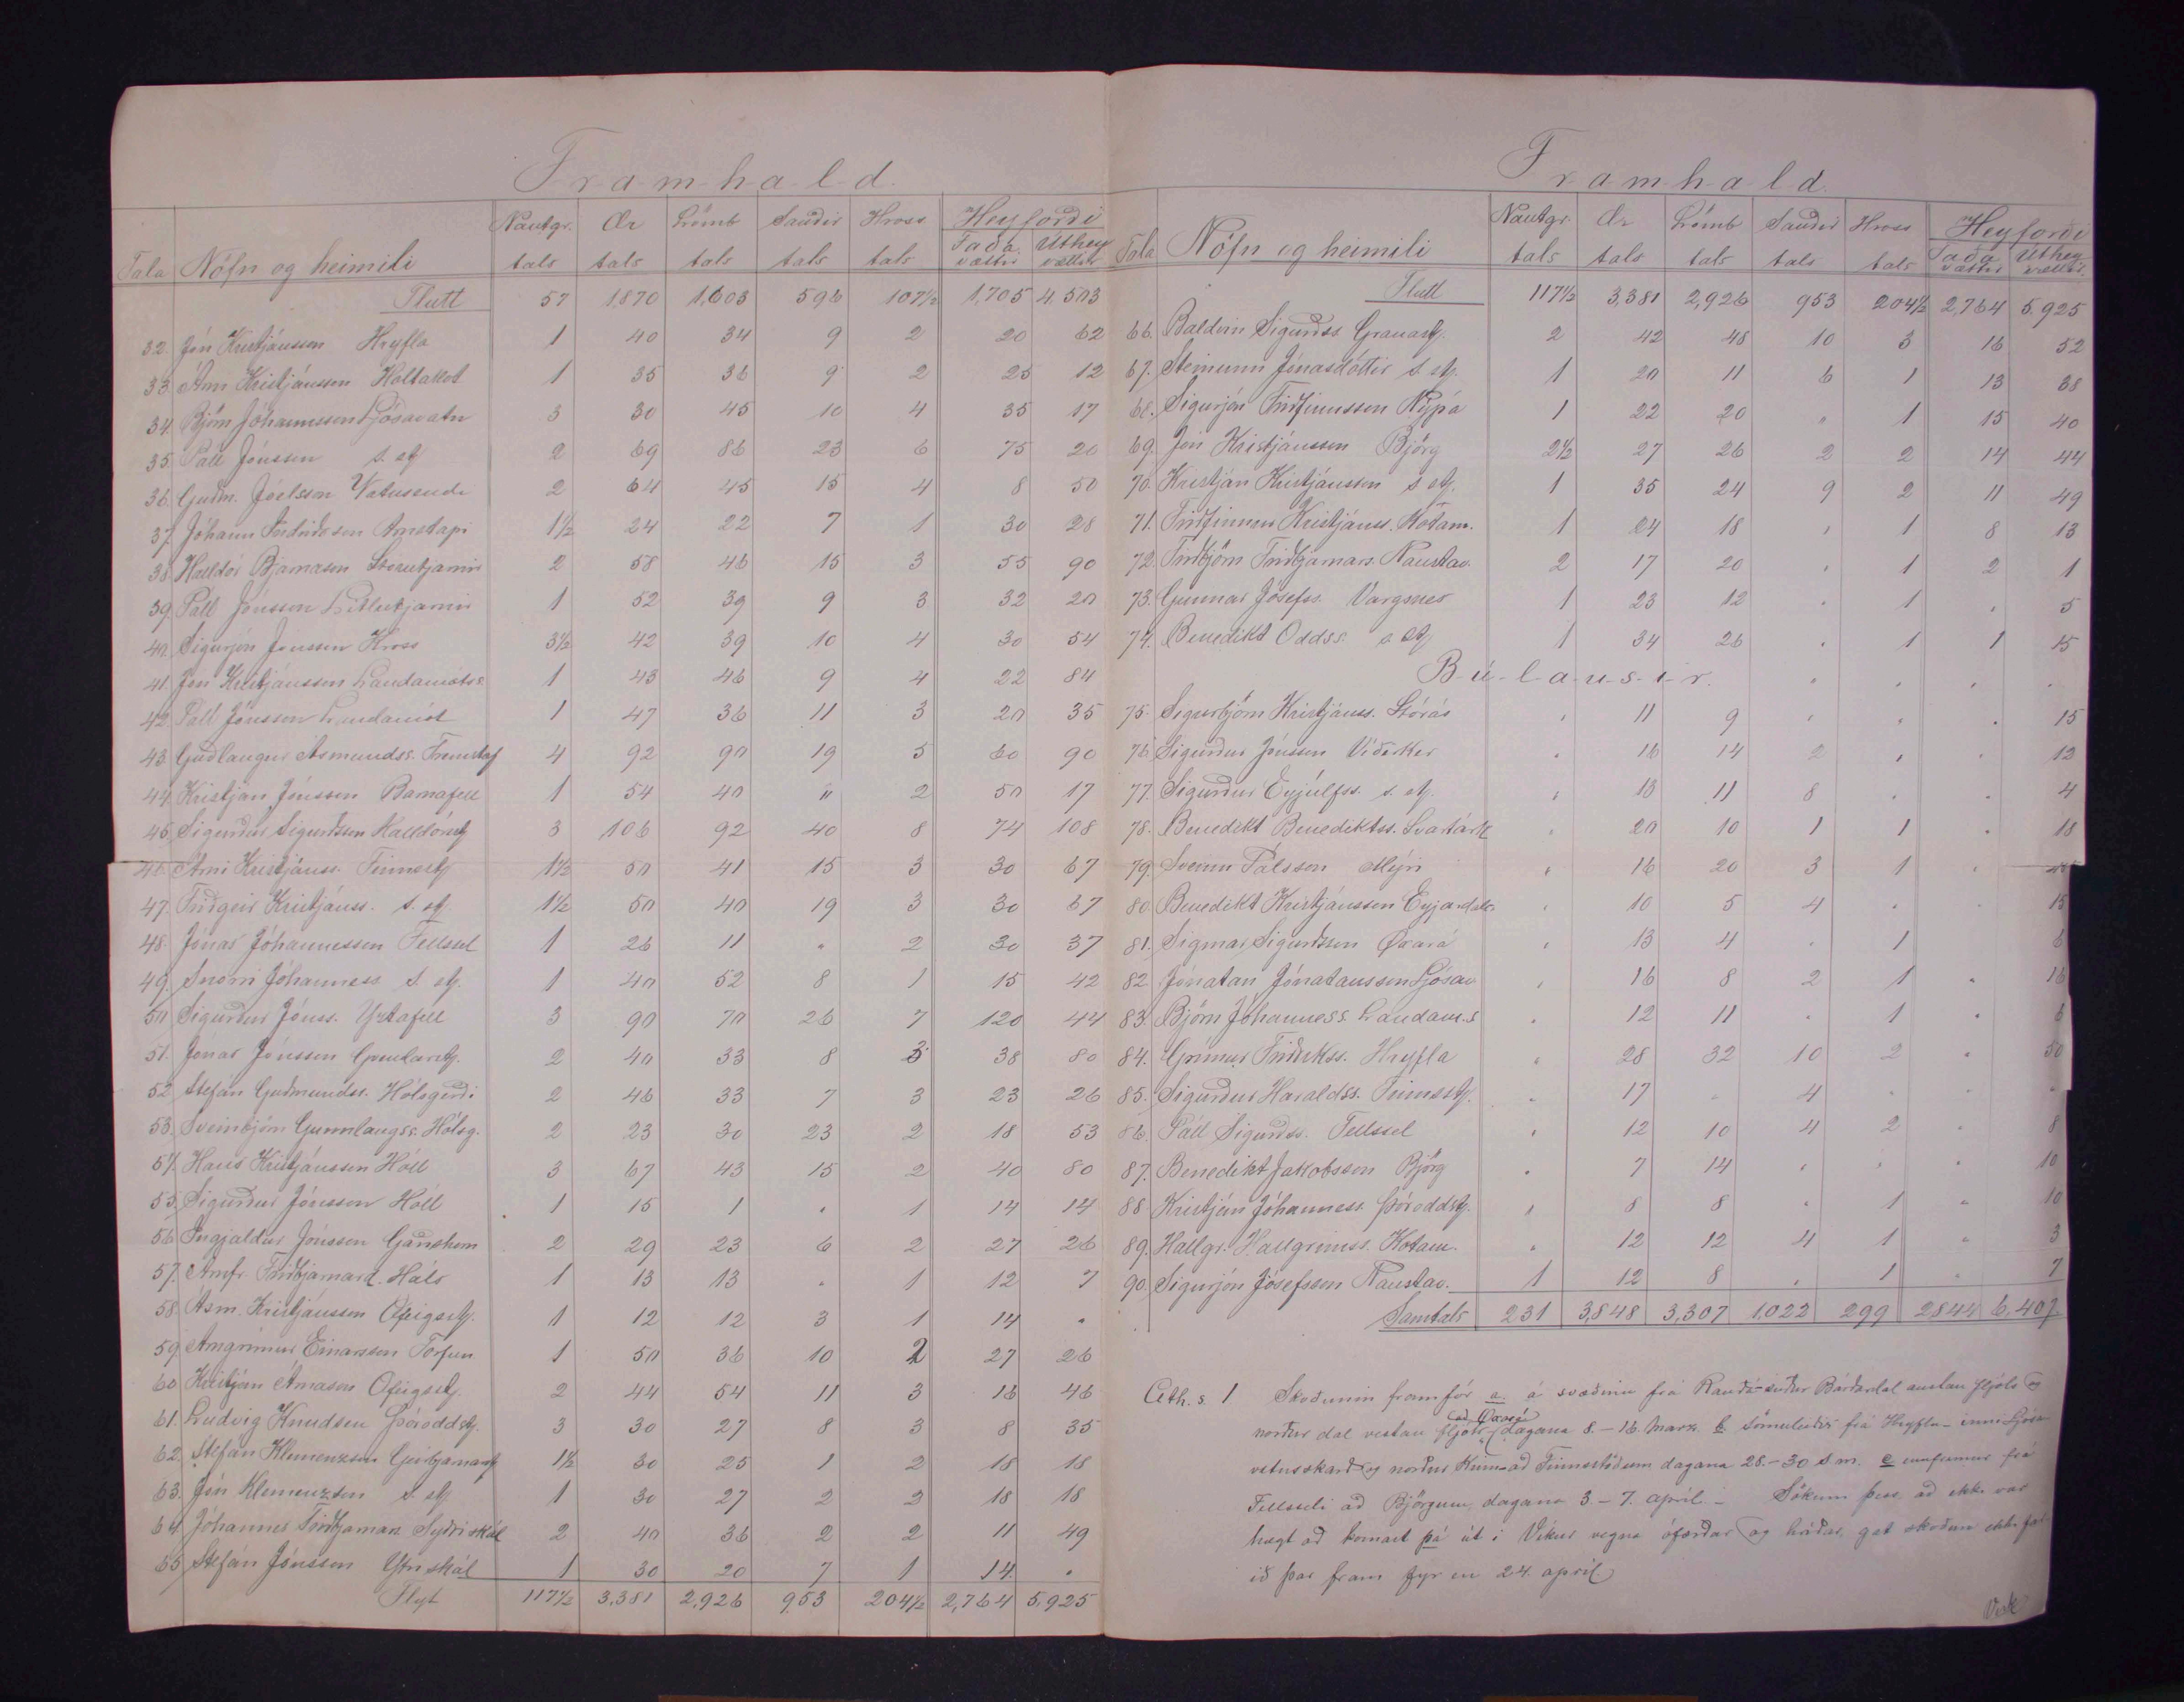 Framhald.
Tala Nöfn og heimili Nautgr. tals Ær tals Lömb tals Sauðir tals Hross tals Heyforði Taða vættir Úthey vættir
Flutt 57 1870 1,603 596 107½ 1,705 4,503
32. Jón Kristjánsson Hryfla 1 40 34 9 2 20 62
33. Árni Kristjánsson Holtakot 1 35 36 9 2 25 12
34. Björn Jóhannesson Ljósavatn 3 30 45 10 4 35 17
35. Páll Jónsson s. st 2 69 86 23 6 75 20
36. Guðm. Jóelsson Vatnsendi 2 64 45 15 4 8 50
37. Jóhann Arnstapi 1½ 24 22 7 1 30 28
38. Halldór Bjarnason Stórutjarnir 2 58 46 15 3 55 90
39. Páll Jónsson Litlutjarnir 1 52 39 9 3 32 20
40. Sigurjón Jónsson Kross 3½ 42 39 10 4 30 54
41. Jón Kristjánsson Landamótss. 1 43 46 9 4 22 84
42. Páll Jónsson Landamót 1 47 36 11 3 20 35
43. Guðlaugur Ásmundss. Fremstaf 4 92 90 19 5 60 90
44. Kristján Jónsson Barnafell 1 54 40 " 2 50 17
45. Sigurður Sigurðsson Halldórsst 3 106 92 40 8 74 108
46. Árni Kristjánss. Finnsst 1½ 50 41 15 3 30 67
47. Friðgeir Kristjánss. s. st. 1½ 50 40 19 3 30 67
48. Jónas Jóhannesson Fellssel 1 26 11 " 2 30 37
49. Snorri Jóhanness. s. st. 1 40 52 8 1 15 42
50 Sigurður Jónss. Yztafell 3 90 70 26 7 120 44
51. Jónas Jónsson Grundarst. 2 40 33 8 3 38 80
52 Stefán Guðmundss. Hólsgerði 2 46 33 7 3 23 26
53. Sveinbjörn Gunnlaugss. Hólsg. 2 23 30 23 2 18 53
54. Hans Kristjánsson Hóll 3 67 43 15 2 40 80
55. Sigurður Jónsson Hóll 1 15 1 " 1 14 14
56 Ingjaldur Jónsson Garðshorn 2 29 23 6 2 27 26
57. Arnfr. Friðbjarnard. Háls 1 13 13 " 1 12 7
58. Ásm. Kristjánsson Ófeigsst. 1 12 12 3 1 14 "
59 Arngrímur Einarsson Torfun 1 50 36 10 2 27 26
60 Kristján Árnason Ófeigsst. 2 44 54 11 3 16 46
61. Ludvig Knudsen Þóroddst. 3 30 27 8 3 8 35
62. Stefán Klemenzson Geirbjarnarst 1½ 30 25 1 2 18 18
63. Jón Klemenzson s. st 1 30 27 2 2 18 18
64. Jóhannes Friðbjarnars Syðriskál 2 40 36 2 2 11 49
65 Stefán Jónsson Ytriskál 1 30 20 7 1 14 "
Flyt 117½ 3,381 2,926 953 204½ 2,764 5,925
Framhald.
Tala Nöfn og heimili Nautgr. tals Ær tals Lömb tals Sauðir tals Hross tals Heyforði Taða vættir Úthey vættir
Flutt 117½ 3,381 2,926 953 204½ 2,764 5,925
66. Baldvin Sigurðss. Granast. 2 42 48 10 3 16 52
67. Steinunn Jónasdóttir s. st. 1 20 11 6 1 13 38
68. Sigurjón Friðfinnsson Nýpá 1 22 20 " 1 15 40
69. Jón Kristjánsson Björg 2½ 27 26 2 2 14 44
70. Kristján Kristjánsson s. st. 1 35 24 9 2 11 49
71. Friðfinnur Kristjánss. Kotam. 1 24 18 " 1 8 13
72. Friðbjörn Friðbjarnars. Naustav. 2 17 20 " 1 2 1
73. Gunnar Jósefss. Vargsnes 1 23 12 " 1 " 5
74. Benedikt Oddss. s. st. 1 34 26 " 1 1 15
Búlausir.
75. Sigurbjörn Kristjánss. Stórás " 11 9 " " " 15
76. Sigurður Jónsson Víðirker " 16 14 2 " " 12
77. Sigurður Eyjúlfss. s. st. " 13 11 8 " " 4
78. Benedikt Benediktss. Svartárk " 20 10 1 1 " 18
79. Sveinn Pálsson Mýri " 16 20 3 1 "
80. Benedikt Kristjánsson Eyjardals. " 10 5 4 " " 15
81. Sigmar Sigurðsson Öxará " 13 4 " 1 6
82. Jónatan Jónatansson Ljósav " 16 8 2 1 " 16
83. Björn Jóhanness. Landam.s " 12 11 " 1 " 6
84. Grímur Friðrikss. Hryfla " 28 32 10 2 " 50
85. Sigurður Haraldss. Finnsst. " 17 " 4 " " "
86. Páll Sigurðss. Fellssel " 12 10 4 2 " 8
87. Benedikt Jakobsson Björg " 7 14 " " " 10
88. Kristján Jóhanness. Þóroddst. " 8 8 " 1 " 10
89. Hallgr. Hallgrímss. Kotam. " 12 12 4 1 " 3
90. Sigurjón Jósefsson Naustav. 1 12 8 " 1 " 7
Samtals 231 3,848 3,307 1,022 299 2844 6,407
Ath.s. 1 Skoðunin framfór a. á svæðinu frá Rauðá suður Bárðardal austan fljóts og
norður dal vestan fljóts (að Öxará) dagana 8. – 16. Marz. b. Sömuleiðis frá Hryflu – inn í Ljósa
vatnsskarð og norður Kinn að Finnsstöðum dagana 28. – 30 s. m. c ennfremur frá
Fellsseli að Björgum, dagana 3. – 7. apríl. – Sökum þess, að ekki var
hægt að komast þá út í Víkur vegna ófærðar og hríðar, gat skoðun ekki far-
ið þar fram fyr en 24. apríl.